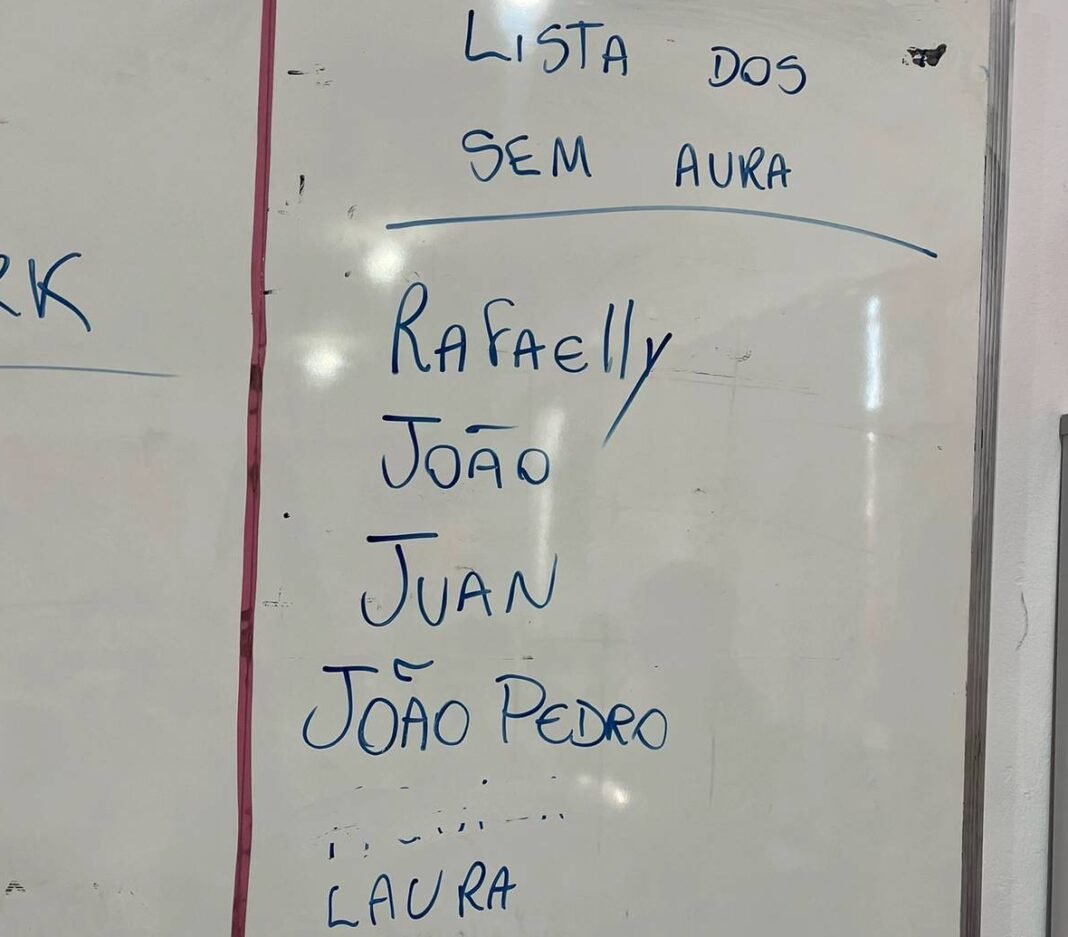 LISTA DOS
SEM AURA
RK
Rafaelly
João
JUAN
João PEDRO
LAURA